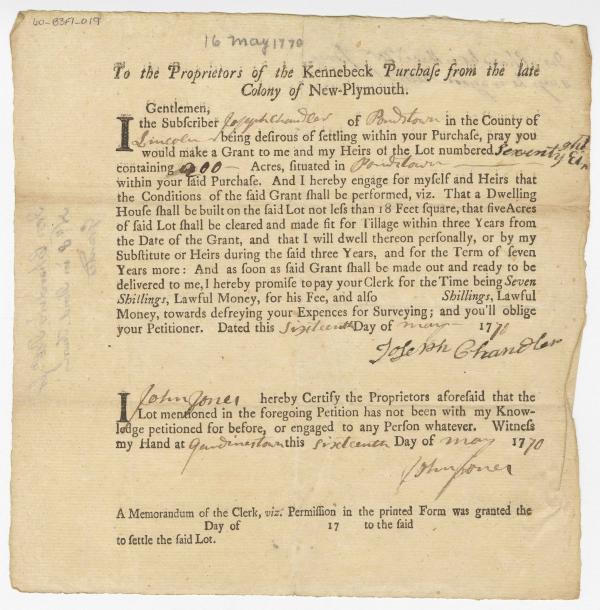 60-B3F1-019
16 may 1770
To the Proprietors of the Kennebeck Purchase from the late
Colony of New-Plymouth.
Gentlemen,
I the Subscriber Joseph Chandler of Pondstown in the County of
Lincoln being desirous of settling within your Purchase, pray you
would make a Grant to me and my Heirs of the Lot numbered Seventy
containing 200 Acres, situated in Pondstown
within your said Purchase. And I hereby engage for myself and Heirs that
the Conditions of the said Grant shall be performed, viz. That a Dwelling
House shall be built on the said Lot not less than 18 Feet square, that five Acres
of said Lot shall be cleared and made fit for Tillage within three Years from
the Date of the Grant, and that I will dwell thereon personally, or by my
Substitute or Heirs during the said three Years, and for the Term of seven
Years more: And as soon as said Grant shall be made out and ready to be
delivered to me, I hereby promise to pay your Clerk for the Time being Seven
Shillings, Lawful Money, for his Fee, and also Shillings, Lawful
Money, towards defreying your Expences for Surveying; and you'll oblige
your Petitioner. Dated this Sixteenth Day of may 1770
Joseph Chandler
I John Jones hereby Certify the Proprietors aforesaid that the
Lot mentioned in the foregoing Petition has not been with my Know-
ledge petitioned for before, or engaged to any Person whatever. Witness
my Hand at Gardinerstown this Sixteenth Day of may 1770
John Jones
A Memorandum of the Clerk, viz. Permission in the printed Form was granted the
Day of 17 to the said
to settle the said Lot.